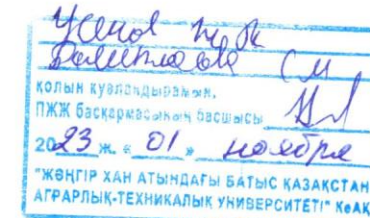 С М
қолын куәландырамын.
ПЖЖ басқармасының басшысы
2023 ж. « 01 » ноября
"ЖӘҢГІР ХАН АТЫНДАҒЫ БАТЫС ҚАЗАҚСТАН
АГРАРЛЫҚ-ТЕХНИКАЛЫҚ УНИВЕРСИТЕТІ" КеАҚ